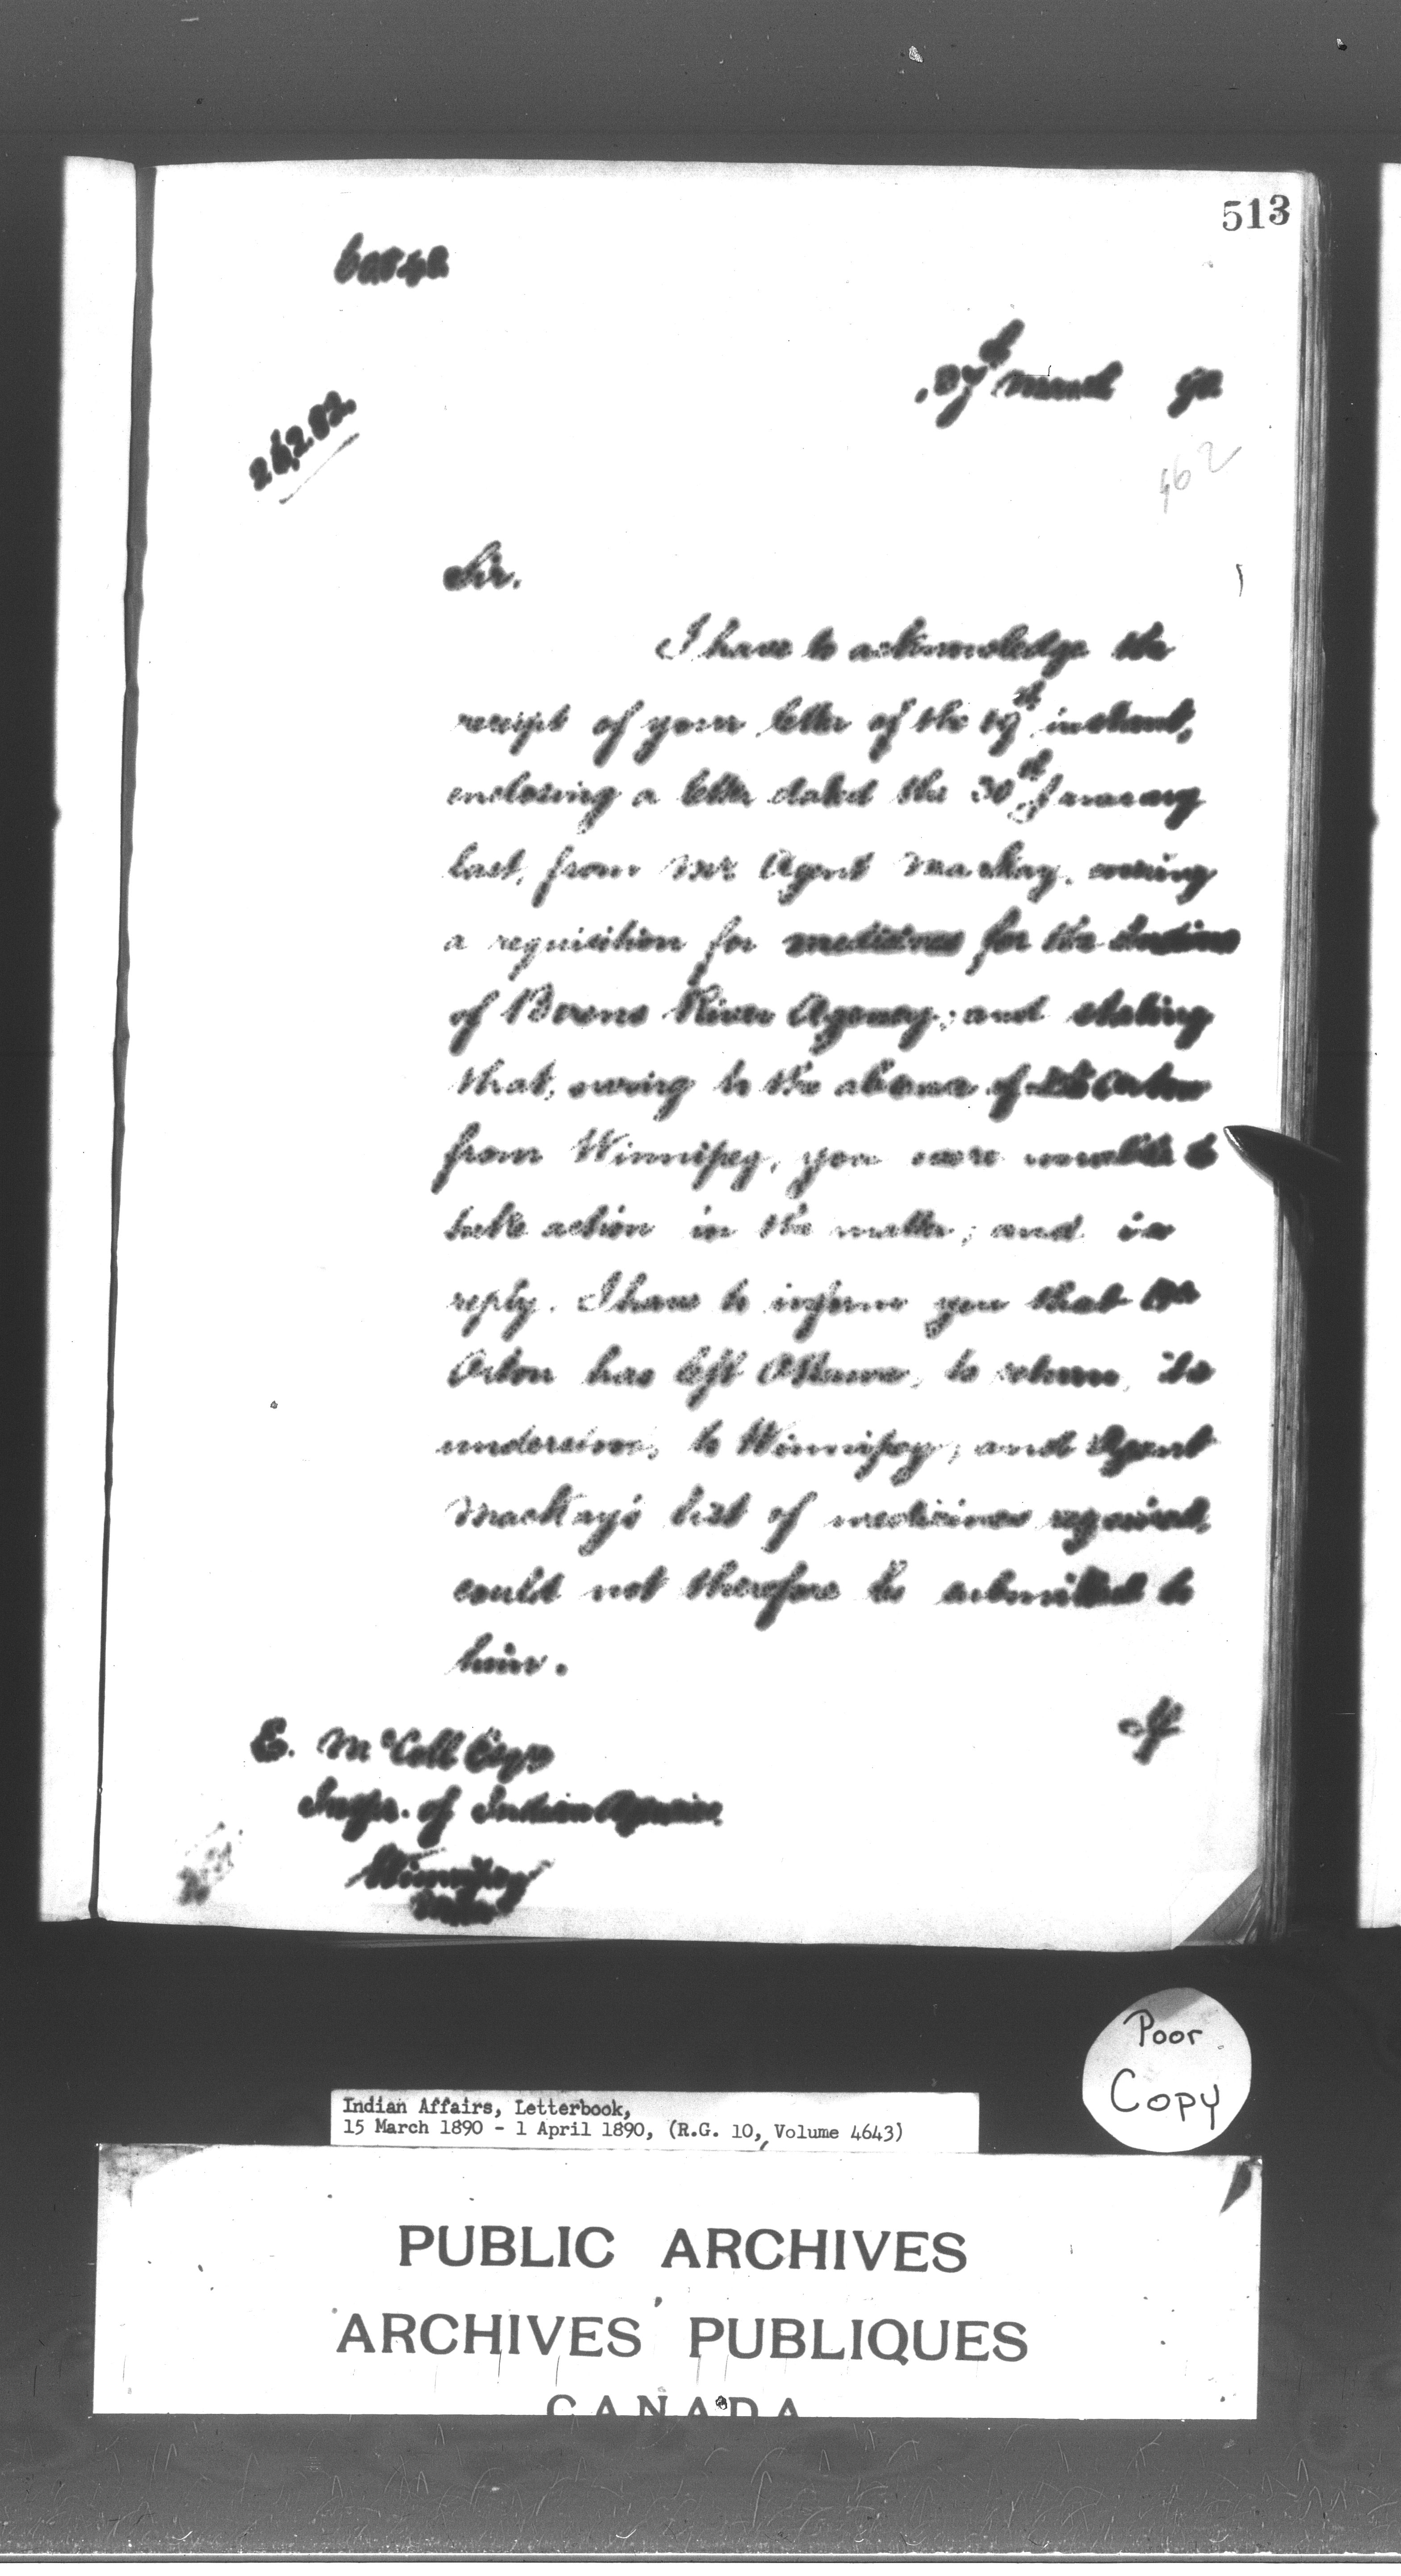 513
27th March 90
26,202.
462
Sir.
I have to acknowledge the
receipt of your letter of the 19th instant,
enclosing a letter dated the 30th January
last, from Mr Agent Mackay, covering
a requisition for medicines for the Indians
of Berens River Agency; and stating
that, owing to the absence of Dr Orton
from Winnipeg, you were unable to
take action in the matter; and in
reply, I have to inform you that Dr
Orton has left Ottawa, to return, it is
understood, to Winnipeg; and Agent
MacKay's list of medicines required,
could not therefore be submitted to
him.
E. McColl Esqre
Inspr. of Indian Agencies.
Winnipeg
Man
Poor
Copy
Indian Affairs, Letterbook,
15 March 1890 - 1 April 1890, (R.G. 10, Volume 4643)
PUBLIC ARCHIVES
ARCHIVES PUBLIQUES
CANADA